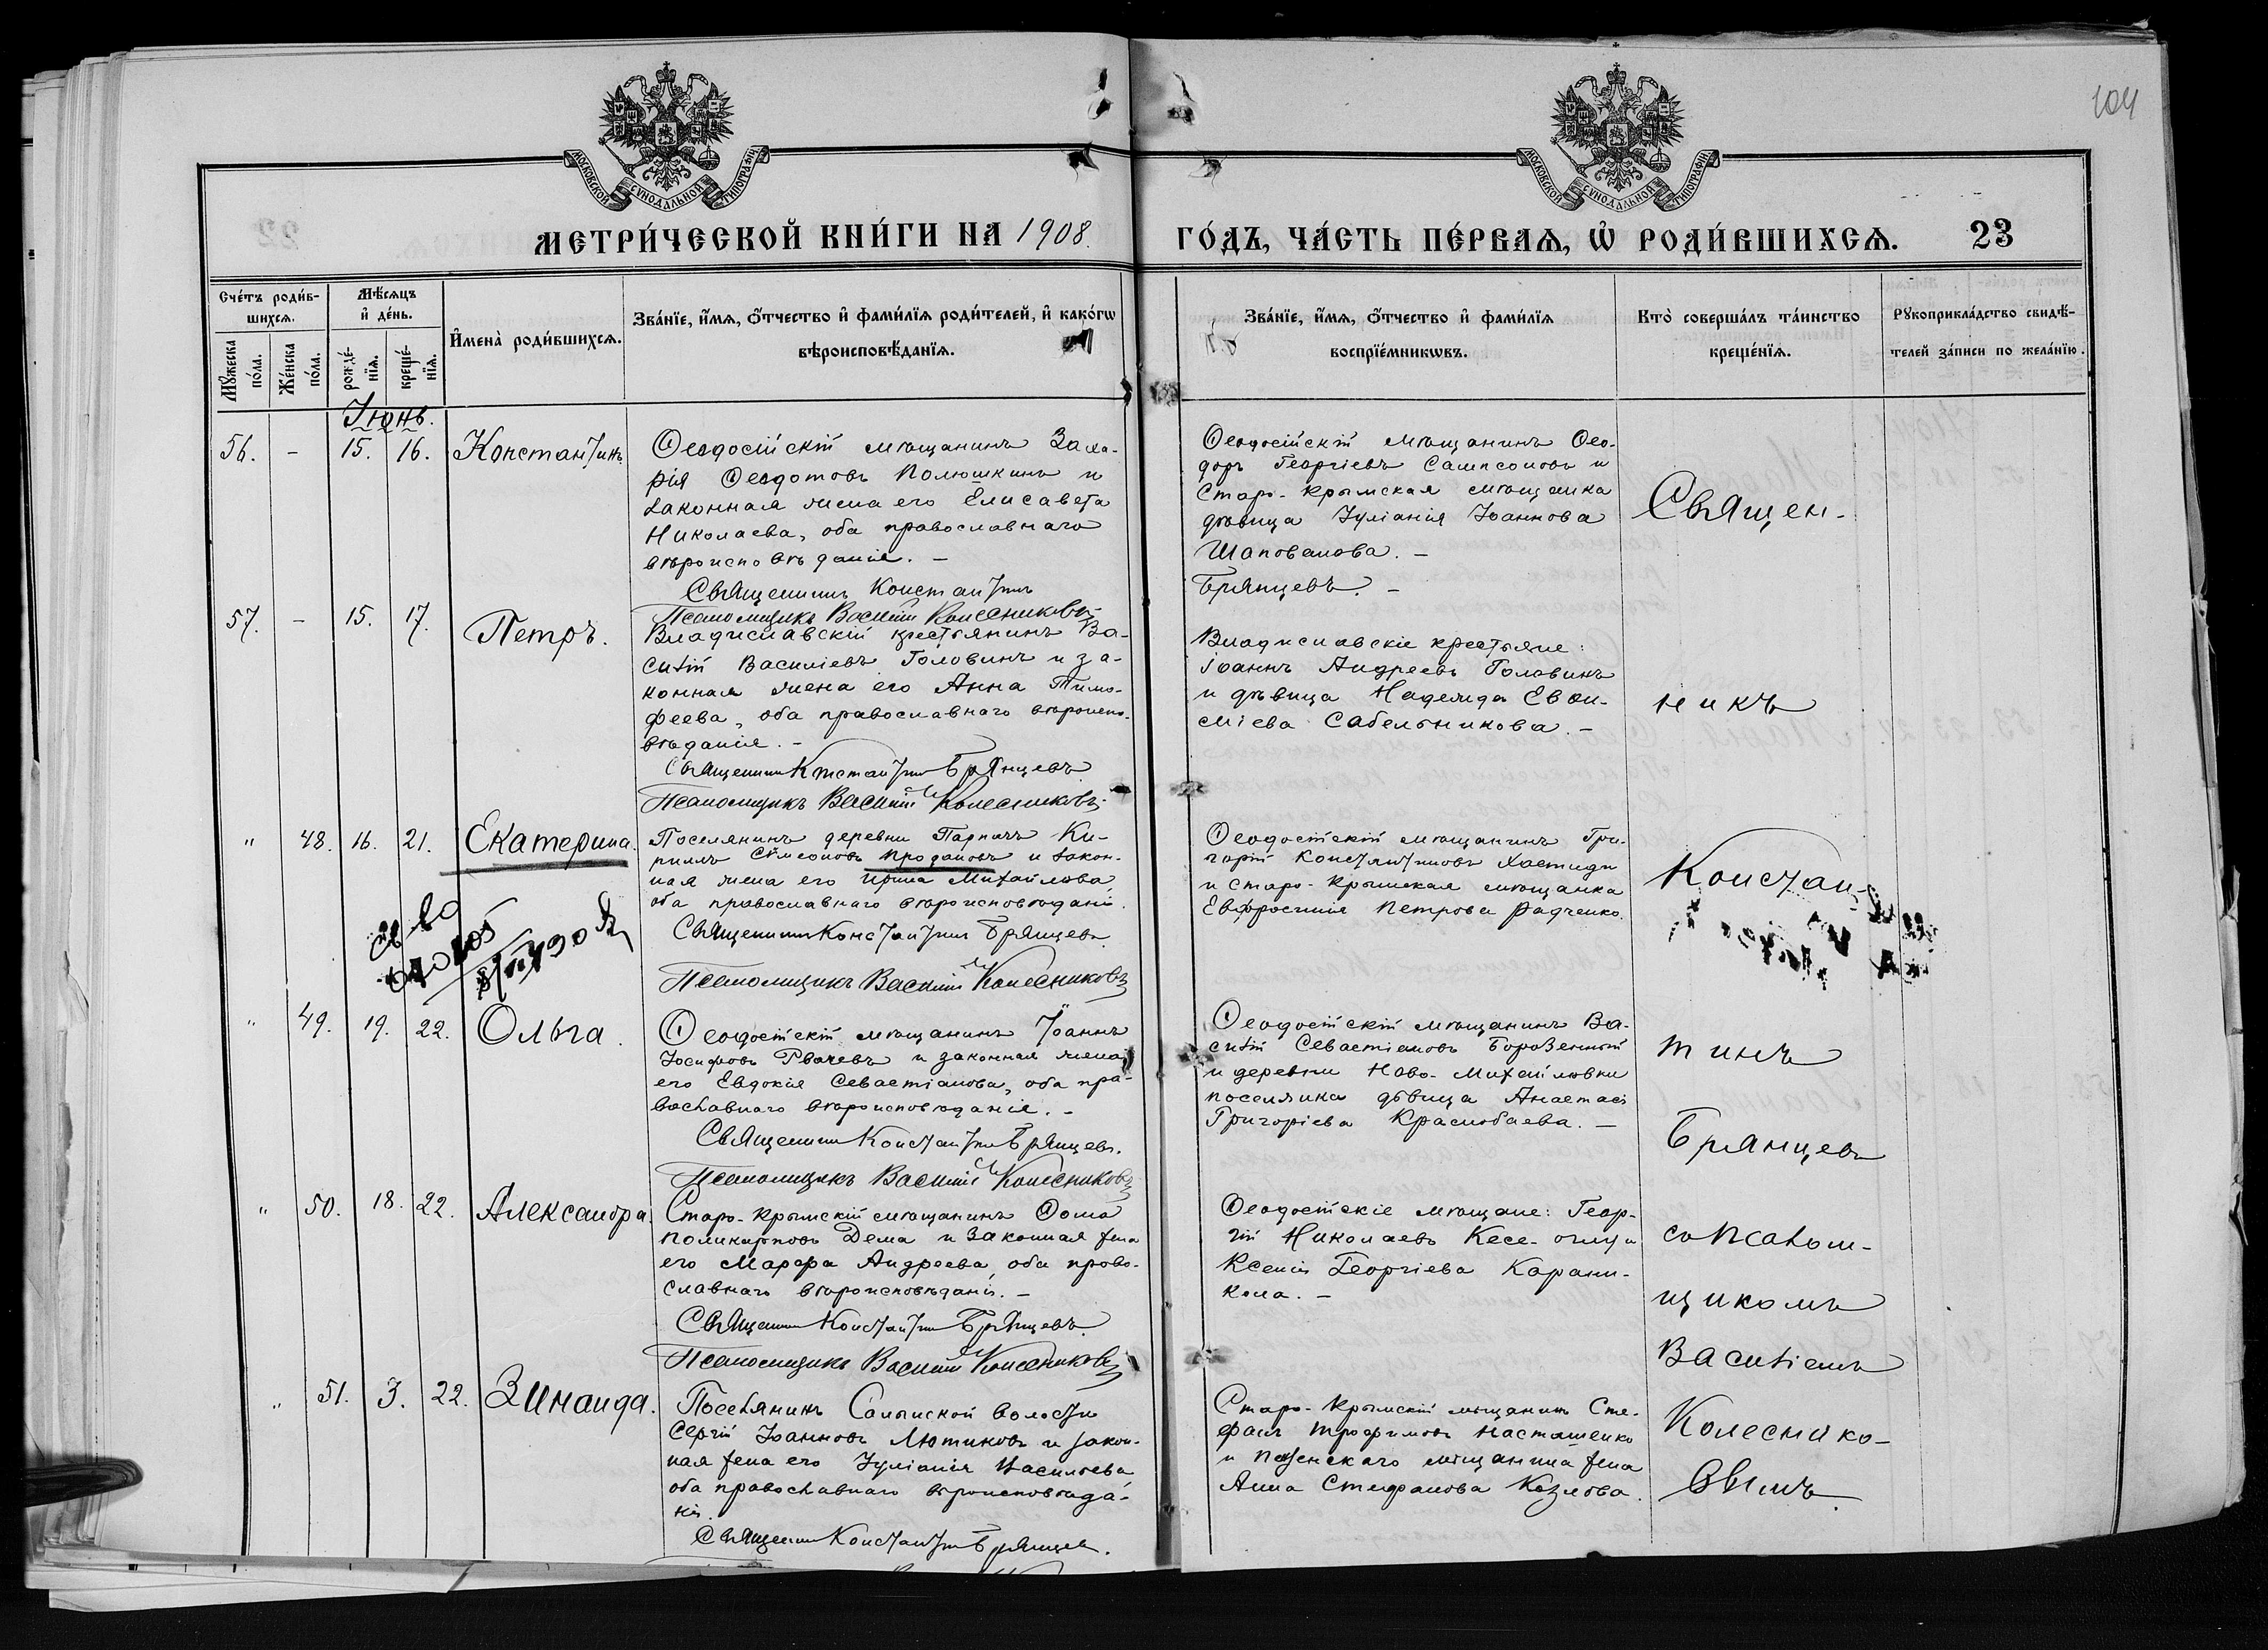 104
МОСКОВСКОЙ СѴНОДАЛЬНОЙ ТИПОГРАФІИ
МОСКОВСКОЙ СѴНОДАЛЬНОЙ ТИПОГРАФІИ
МЕТРИ́ЧЕСКОЙ КНИ́ГИ НА 1908.
ГО́ДЪ, ЧА́СТЬ ПЕ́РВАѦ, Ѡ҆ РОДИ́ВШИХСѦ. 23
Сче́тъ роди́в-
шихсѧ.
Мѣ́сѧцъ
и҆ де́нь.
И҆мена̀ роди́вшихсѧ.
Зва́нїе, и҆́мѧ, ѻ҆́тчество и҆ фами́лїѧ роди́телей, и҆ како́гѡ
вѣроисповѣ́данїѧ.
Зва́нїе, и҆́мѧ, ѻ҆́тчество и҆ фами́лїѧ
воспрїе́мникѡвъ.
Кто̀ соверша́лъ та́инство
креще́нїѧ.
Рꙋкоприкла́дство свидѣ́-
телей за́писи по жела́нїю.
Мꙋ́жеска
по́ла.
Же́нска
по́ла.
рожде́-
нїѧ.
креще́-
нїѧ.
Іюнь.
56. - 15. 16. Константинъ
Ѳеодосійскій мѣщанинъ Заха-
рія Ѳеодотовъ Полюшкинъ и
законная жена его Елисавета
Николаева, оба православнаго
вѣроисповѣданія. -
Священникъ Константинъ
Брянцевъ. -
Псаломщикъ Василій Колесниковъ
Ѳеодосійскій мѣщанинъ Ѳео-
доръ Георгіевъ Сампсоновъ и
Старо-Крымская мѣщанка
дѣвица Іуліанія Іоаннова
Шаповалова. -
57. - 15. 17. Петръ.
Владиславскій крестьянинъ Ва-
силій Василіевъ Головинъ и за-
конная жена его Анна Тимо-
феева, оба православнаго вѣроиспо-
вѣданія. -
Священникъ Константинъ Брянцевъ
Псаломщикъ Василій Колесниковъ
Владиславскіе крестьяне:
Іоаннъ Андреевъ Головинъ
и дѣвица Надежда Евѳи-
міева Сабельникова. -
" 48. 16. 21. Екатерина.
Поселянинъ деревни Парпачъ Ки-
риллъ Симеоновъ Продановъ и закон-
ная жена его Ирина Михайлова,
оба православнаго вѣроисповѣданія.
Священникъ Константинъ Брянцевъ
Псаломщикъ Василій Колесниковъ
Ѳеодосійскій мѣщанинъ Гри-
горій Константиновъ
и Старо-Крымская мѣщанка
Евфросинія Петрова Радченко.
св-во
" 49. 19. 22. Ольга.
Ѳеодосійскій мѣщанинъ Іоаннъ
Іосифовъ Рвачевъ и законная жена
его Евдокія Севастіанова, оба пра-
вославнаго вѣроисповѣданія. -
Священникъ Константинъ Брянцевъ.
Псаломщикъ Василій Колесниковъ
Ѳеодосійскій мѣщанинъ Ва-
силій Севастіановъ
и деревни Ново-Михайловки
поселянка дѣвица Анастасія
Григоріева Краснобаева. -
" 50. 18. 22. Александра.
Старо-Крымскій мѣщанинъ Ѳома
Поликарповъ Дема и законная жена
его Марфа Андреева, оба право-
славнаго вѣроисповѣданія. -
Священникъ Константинъ Брянцевъ.
Псаломщикъ Василій Колесниковъ
Ѳеодосійскіе мѣщане: Геор-
гій Николаевъ Кесе-оглу и
Ксенія Георгіева Карани-
кола. -
" 51. 3. 22. Зинаида.
Поселянинъ Салынской волости
Сергій Іоанновъ Лютиковъ и закон-
ная жена его Іуліанія Васильева
оба православнаго вѣроисповѣда-
нія.
Священникъ Константинъ Брянцевъ.
Старо-Крымскій мѣщанинъ Сте-
фанъ Трофимовъ Насташенко
и Пензенскаго мѣщанина жена
Анна Стефанова Козлова.
Священ-
никъ
Констан-
тинъ
Брянцевъ
съ Псалом-
щикомъ
Василіемъ
Колеснико-
вымъ.